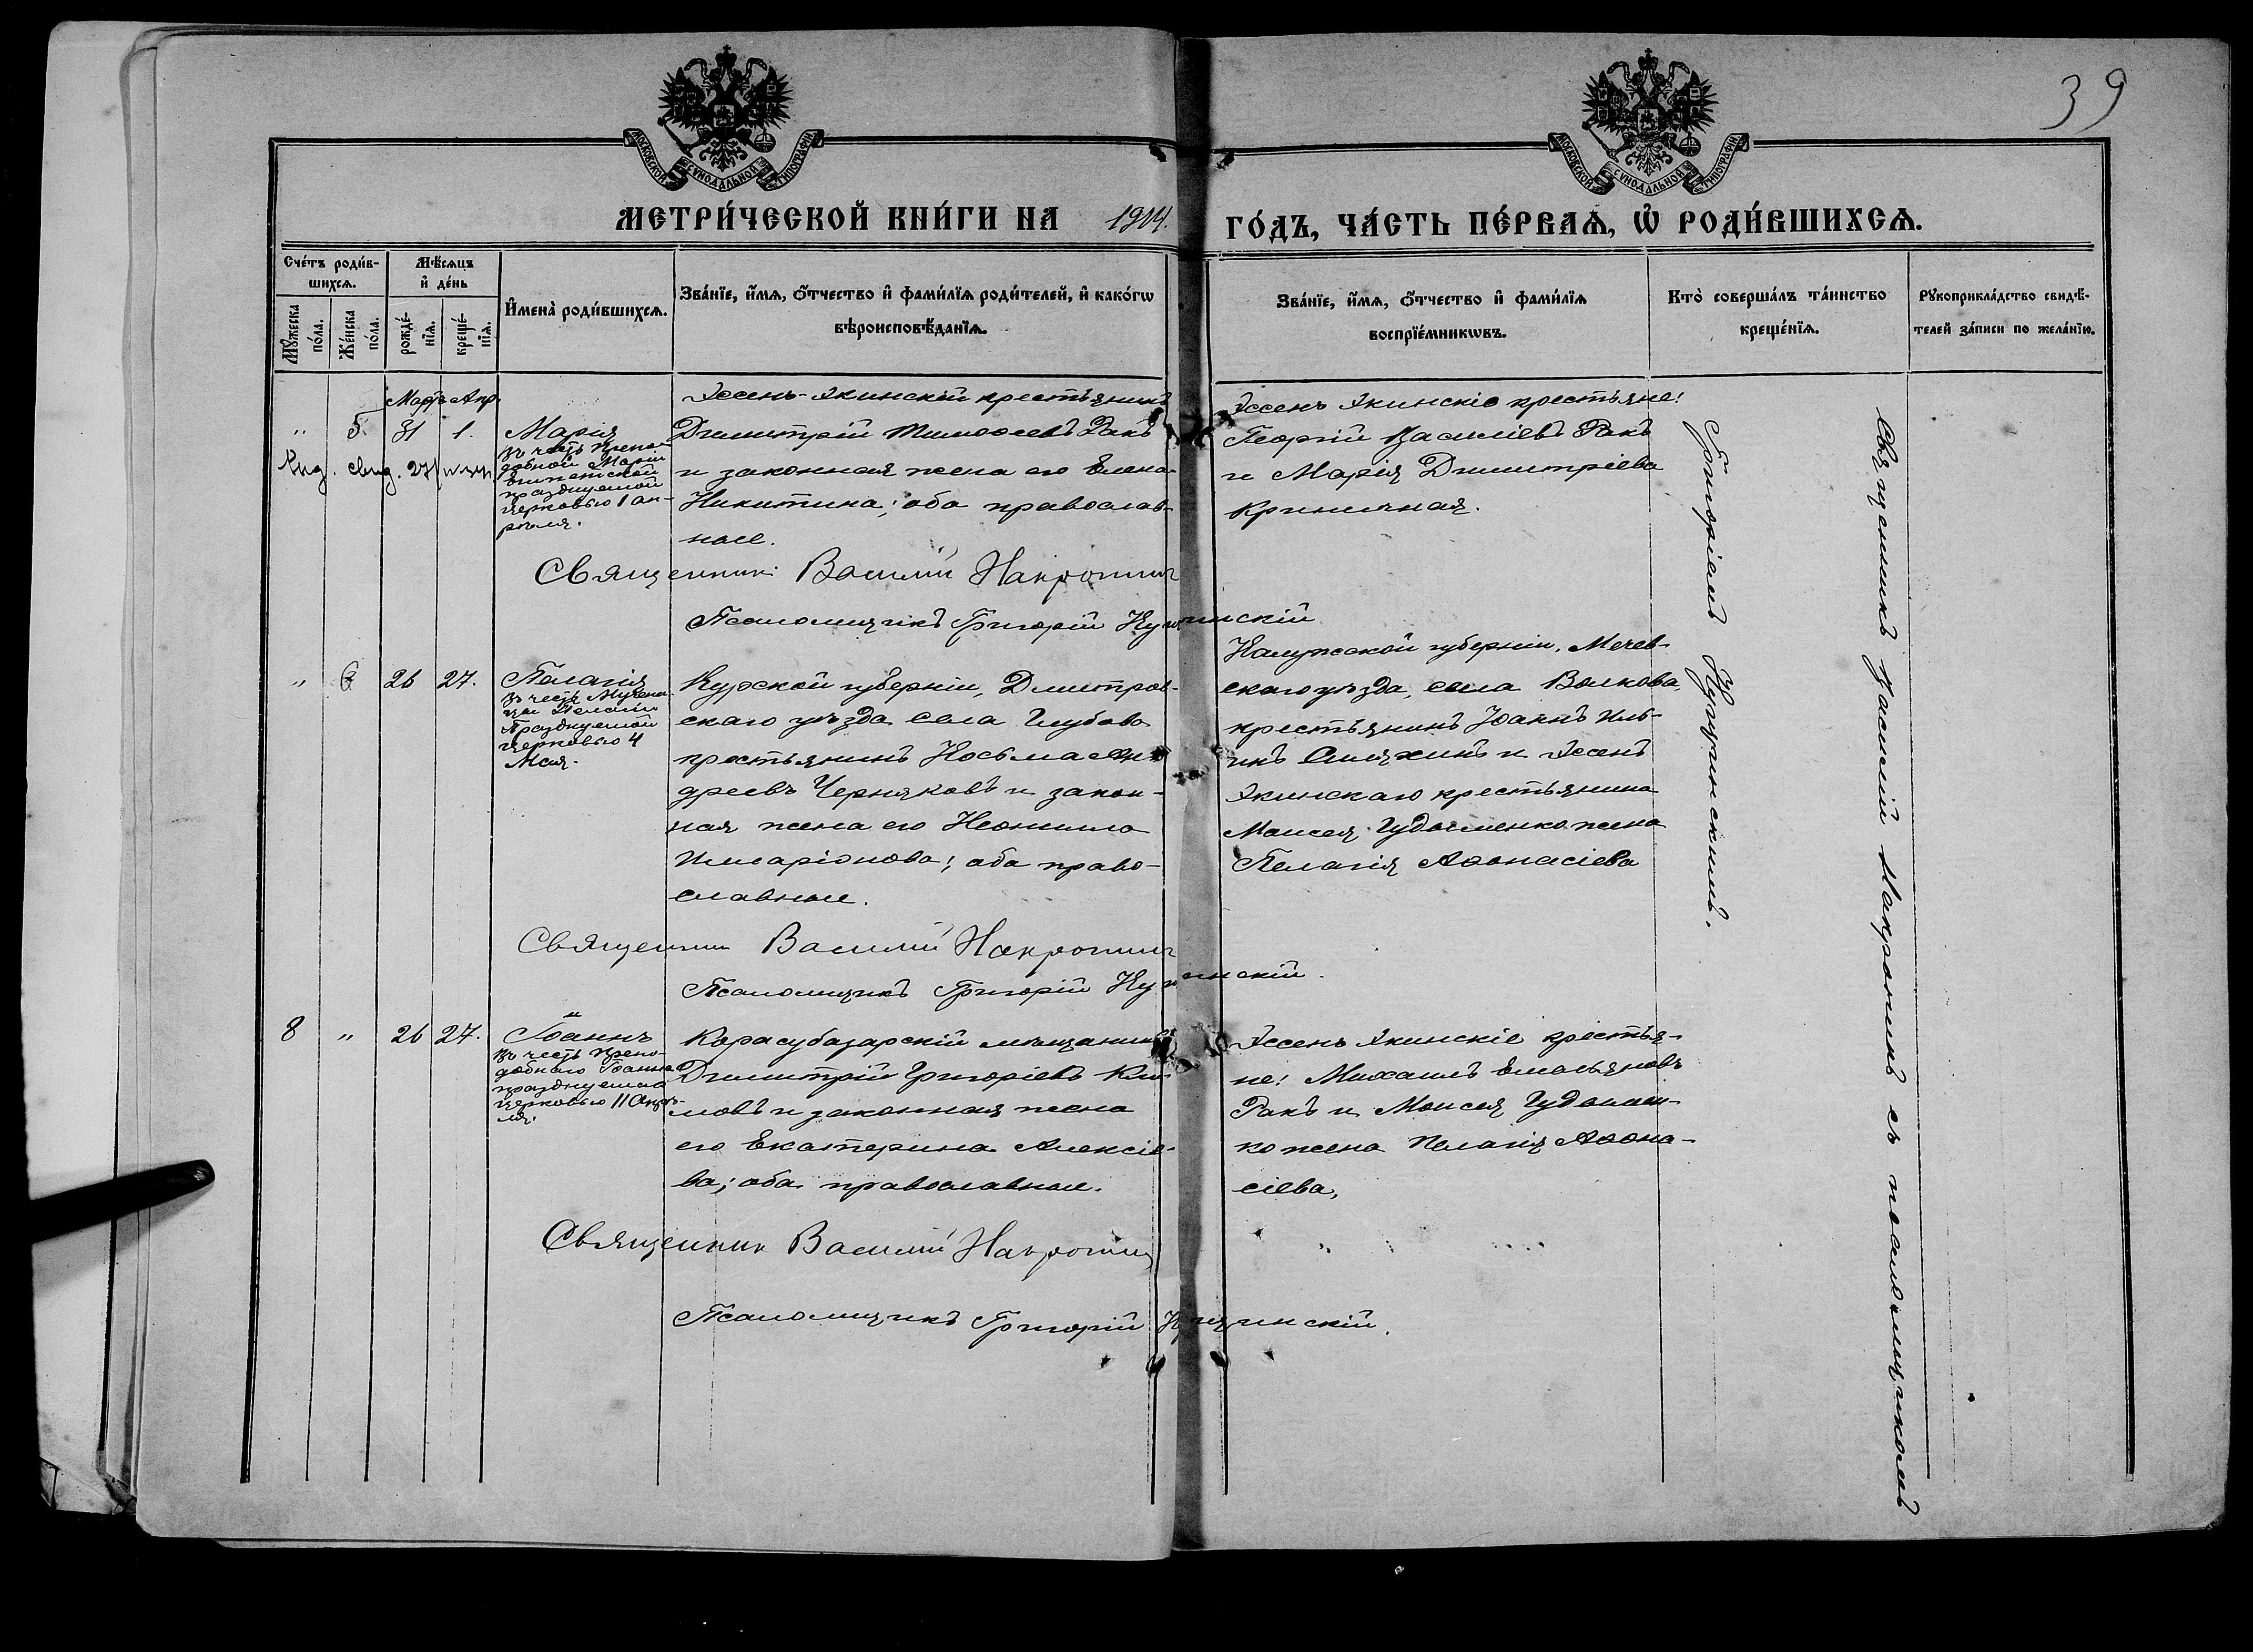 39
МОСКОВСКОЙ СУНОДАЛЬНОЙ ТИПОГРАФІИ
МОСКОВСКОЙ СУНОДАЛЬНОЙ ТИПОГРАФІИ
МЕТРИ́ЧЕСКОЙ КНИ́ГИ НА 1914. ГО́ДЪ, ЧА́СТЬ ПЕ́РВАѦ, Ѽ РОДИ́ВШИХСѦ.
Сче́тъ роди́в-
шихсѧ.
Мѣ́сѧцъ
и҆ де́нь
Мꙋ́жеска
по́ла.
Же́нска
по́ла.
рожде́-
нїѧ.
креще́-
нїѧ.
И҆мена̀ роди́вшихсѧ.
Зва́нїе, и҆́мѧ, ѻ҆́тчество и҆ фами́лїѧ роди́телей, и҆ како́гѡ
вѣроисповѣ́данїѧ.
Зва́нїе, и҆́мѧ, ѻ҆́тчество и҆ фами́лїѧ
воспрїе́мникѡвъ.
Кто̀ соверша́лъ та́инство
креще́нїѧ.
Рꙋкоприкла́дство свидѣ́-
телей за́писи по жела́нїю.
Мартъ Апр.
" 5. 31 1.
Марія
въ честь Препо-
добной Маріи
Египетской
празднуемой
церковью 1 ап-
рѣля.
Эссенъ-Экинскій крестьянинъ
Димитрій Тимоѳеевъ Ракъ
и законная жена его Елена
Никитина; оба православ-
ные.
Эссенъ Экинскіе крестьяне:
Георгій Василіевъ Ракъ
и Марія Димитріева
Криничная.
Священникъ Василій Накропинъ
Псаломщикъ Григорій
" 6 26 27.
Пелагія
въ честь Мучени-
цы Пелагіи
Празднуемой
церковью 4
Мая.
Курской губерніи, Дмитров-
скаго уѣзда села
крестьянинъ Косьма Ан-
дреевъ Черняковъ и закон-
ная жена его Неонила
Иларіонова; оба право-
славные.
Калужской губерніи,
скаго уѣзда, села Волкова,
крестьянинъ Іоаннъ Иль-
инъ и Эссенъ
Экинскаго крестьянина
Моисея Гудыменко жена
Пелагія Аѳонасіева
Священникъ Василій Накропинъ
Псаломщикъ Григорій
8 " 26 27.
Іоаннъ
въ честь Препо-
добнаго Іоанна
празднуемаго
церковью 11 Апрѣ-
ля.
Карасубазарскій мѣщанинъ
Димитрій Григоріевъ Кли-
мовъ и законная жена
его Екатерина Алексіе-
ва; оба православные.
Эссенъ Экинскіе крестья-
не: Михаилъ Емельяновъ
Ракъ и Моисея Гудымен-
ко жена Пелагія Аѳона-
сіева,
Священникъ Василій Накропинъ
Псаломщикъ Григорій
Священникъ Василій Накропинъ съ псаломщикомъ
Григоріемъ